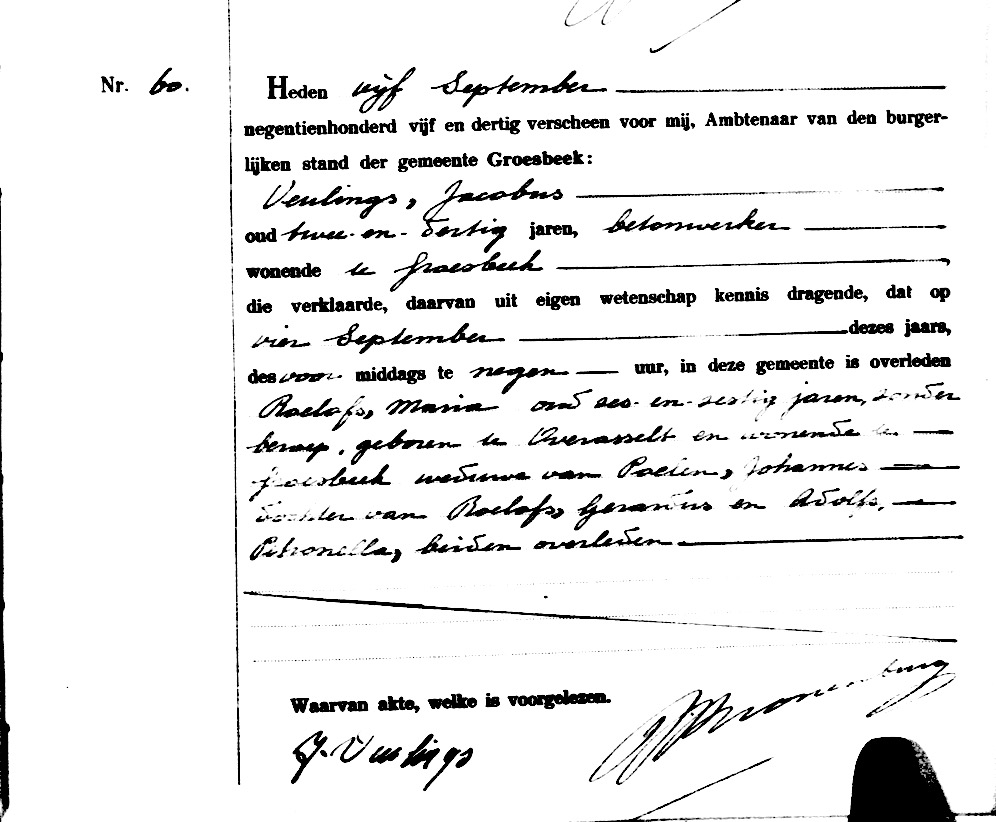 Nr. 60. Heden vijf September
negentienhonderd vijf en dertig verscheen voor mij, Ambtenaar van den burger-
lijken stand der gemeente Groesbeek:
Veulings, Jacobus
oud twee-en-dertig jaren, betonwerker
wonende te Groesbeek
die verklaarde, daarvan uit eigen wetenschap kennis dragende, dat op
vier September dezes jaars,
des voor middags te negen uur, in deze gemeente is overleden
Roelofs, Maria oud zes-en-zestig jaren, zonder
beroep, geboren te Overasselt en wonende te
Groesbeek weduwe van Poelen, Johannes
dochter van Roelofs, Gerardus en Adolfs,
Petronella, beiden overleden
Waarvan akte, welke is voorgelezen.
J. Veulings